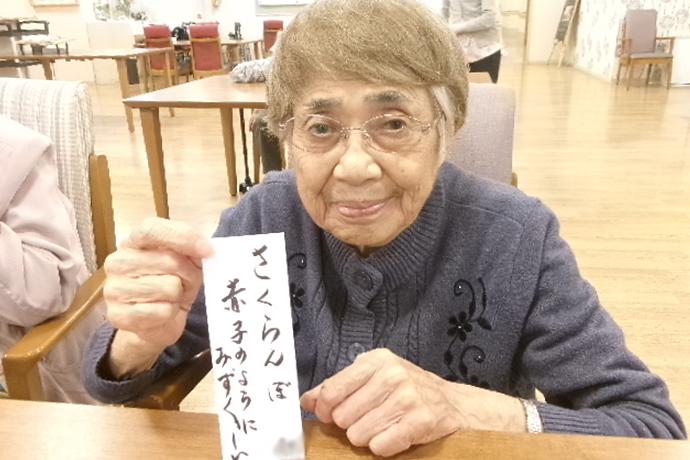 さくらんぼ
赤子のように
みずくしや